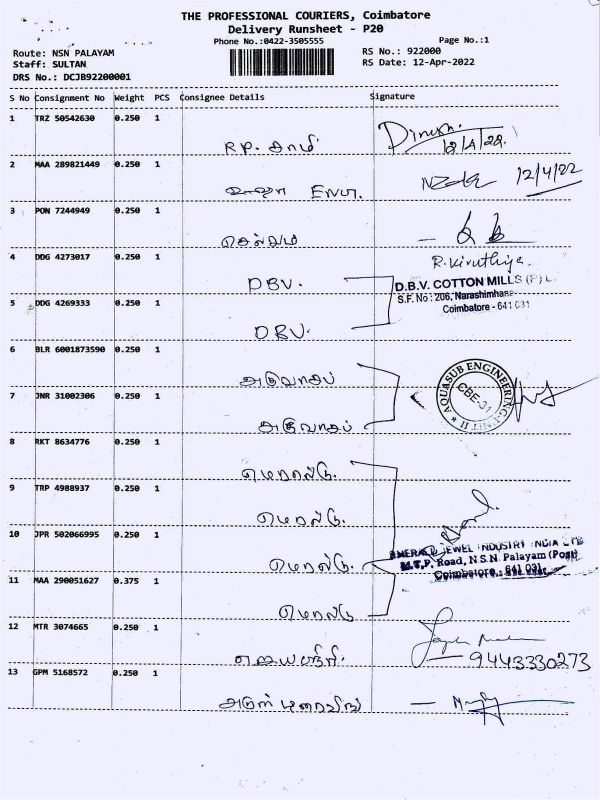 THE PROFESSIONAL COURIERS, Coimbatore
Delivery Runsheet - P20
Phone No.:0422-3505555
Page No.:1
Route: NSN PALAYAM
RS No.: 922000
Staff: SULTAN
RS Date: 12-Apr-2022
DRS No.: DCJB92200001
S No Consignment No Weight PCS Consignee Details Signature
1 TRZ 50542630 0.250 1
R.P. Dinesh.
12/4/22.
2 MAA 289821449 0.250 1
12/4/22
3 PON 7244949 0.250 1
செல்வம்
4 DDG 4273017 0.250 1
R. Kiruthiga.
DBV.
D.B.V. COTTON MILLS (P) L
S.F. No: 206, Narashimha
Coimbatore - 641 031
5 DDG 4269333 0.250 1
DBV.
6 BLR 6001873590 0.250 1
7 JNR 31002306 0.250 1
AQUASUB ENGINEERING-UNIT II
CBE-31
8 RKT 8634776 0.250 1
எமரால்டு.
9 TRP 4988937 0.250 1
எமரால்டு.
10 JPR 502066995 0.250 1
எமரால்டு.
EMERALD JEWEL INDUSTRY INDIA LTD
M.T.P. Road, N.S.N. Palayam (Post)
Coimbatore - 641 031
11 MAA 290051627 0.375 1
எமரால்டு
12 MTR 3074665 0.250 1
9443330273
13 GPM 5168572 0.250 1
அருள்